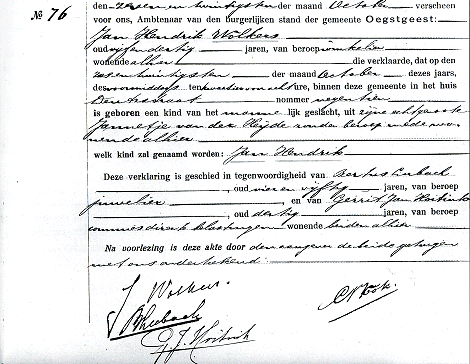 № 76
den zes en twintigsten der maand October verscheen
voor ons, Ambtenaar van den burgerlijken stand der gemeente Oegstgeest:
Jan Hendrik Wolkers
oud vijf en dertig jaren, van beroep winkelier
wonende alhier die verklaarde, dat op den
zes en twintigsten der maand October dezes jaars,
des voormiddags ten uure, binnen deze gemeente in het huis
nummer negentien
is geboren een kind van het mannelijk geslacht, uit zijne echtgenoote
Jannetje van der Heijde zonder beroep mede wo-
nende alhier
welk kind zal genaamd worden: Jan Hendrik
Deze verklaring is geschied in tegenwoordigheid van
, oud vier en vijftig jaren, van beroep
juwelier, en van Gerrit Jan
, oud dertig jaren, van beroep
commies directe belastingen wonende beiden alhier
Na voorlezing is deze akte door den aangever de beide getuigen
met ons onderteekend.
J Wolkers.